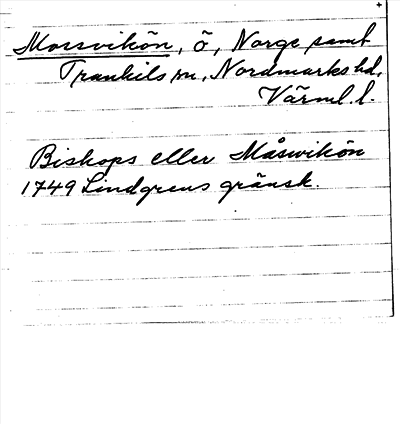 Mossvikön, ö, Norge samt
Trankils sn, Nordmarks hd,
Värml. l.
Biskops eller Måsvikön
1749 Lindgrens gränsk.